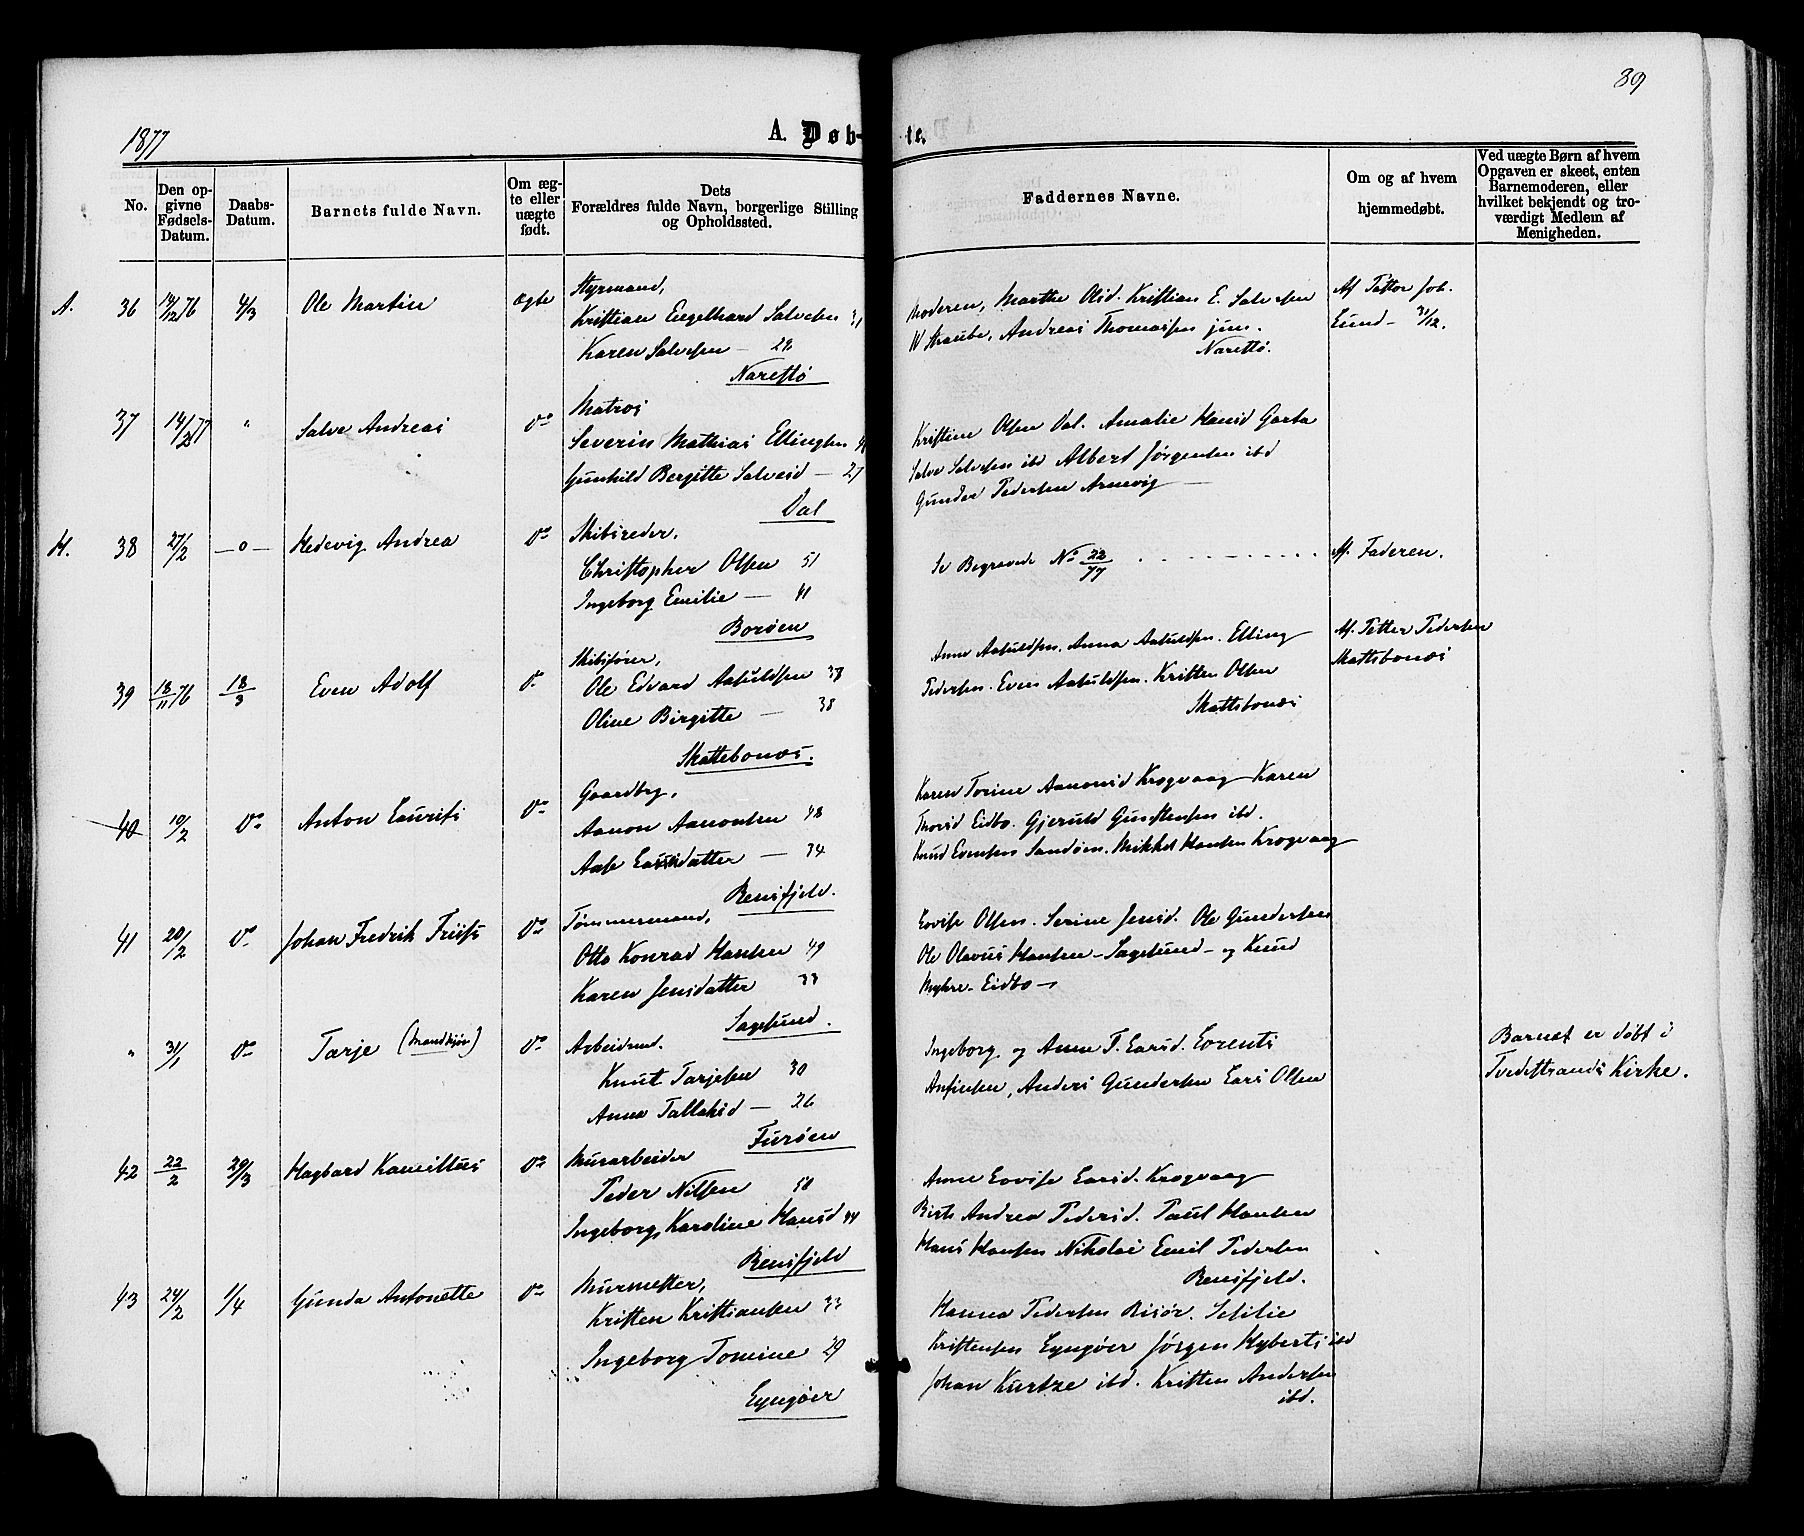 89
1877
A. Døb-te.
No.
Den opgivne Fødsels-Datum.
Daabs-Datum.
Barnets fulde Navn.
Om ægte eller uægte født.
Dets Forældres fulde Navn, borgerlige Stilling og Opholdssted.
Faddernes Navne.
Om og af hvem hjemmedøbt.
Ved uægte Børn af hvem Opgaven er skeet, enten Barnemoderen, eller hvilket bekjendt og troværdigt Medlem af Menigheden.
A. 36 14/12 76 4/3 Ole Martin ægte Styrmand,
Kristian Engelhard Salvesen 31
Karen Salvesen — 28
Narestø
Moderen, Marthe Olsd. Kristian E. Salvesen
W Straube, Andreas Thomassen jun.
Narestø.
Af Petter Joh.
Lund - 31/12.
37 14/2 77 " Salve Andreas Do Matros
Severin Mathias Ellingsen
Gunhild Bergitte Salvesd — 27
Dal
Kristine Olsen Dal. Amalie Hansd Garta
Salve Salvesen ibd Albert Jørgensen ibd
Gunder Pedersen Arnevig —
H. 38 27/2 —o— Hedevig Andrea Do Skibsreder,
Christopher Olsen 51
Ingeborg Emilie — 41
Borøen
Se Begravede No 22/77
Af Faderen.
39 18/11 76 18/3 Even Adolf Do Skibsfører,
Ole Edvard Aasuldsen 38
Oline Birgitte — 38
Skottebonæs.
Anne Aasuldsen. Anna Aasuldsen. Elling
Pedersen. Even Aasuldsen. Kristen Olsen
Skottsbonæs
Af. Petter Pedersen
Skottsbonæs
40 10/2 Do Anton Laurits Do Gaardbrg,
Aanon Aanonsen 48
Aase Larsdatter — 34
Rensfjeld.
Karen Torine Aanonsd Krogvaag Karen
Thorsd Eidbo. Gjeruld Gunstensen ibd.
Knud Evensen Sandøen. Mikkel Hansen Krogvaag
41 20/2 Do Johan Fredrik Friis Do Tømmermand,
Otto Konrad Hansen 49
Karen Jensdatter 33
Sagesund.
Lovise Olsen. Serine Jensd. Ole Gundersen
Ole Olavus Hansen - Sagesund - og Knud
Myhre - Eidbo —
" 31/1 Do Tarje (Mandkjøn) Do Arbeidsmd.
Knut Tarjesen 30
Anna Tallaksd — 26
Furøen
Ingeborg og Anne T. Larsd. Lorents
Anfinsen, Anders Gundersen Lars Olsen
Barnet er døbt i
Tvedestrands Kirke.
42 22/2 29/3 Hagbard Kamillus Do Murarbeider
Peder Nilsen 50
Ingeborg Karoline Hansd 44
Rensfjeld
Anne Lovise Larsd. Krogvaag
Birte Andrea Pedersd. Paul Hansen
Hans Hansen Nikolai Emil Pedersen
Rensfjeld.
43 24/2 1/4 Gunda Antonette Do Murmester,
Kristen Kristiansen 33
Ingeborg Tomine 29
Lyngøer
Hanna Pedersen Risør. Sesilie
Kristensen Lyngøer Jørgen Hyberts ibd
Johan Kurtze ibd. Kristen Andersen
ibd.